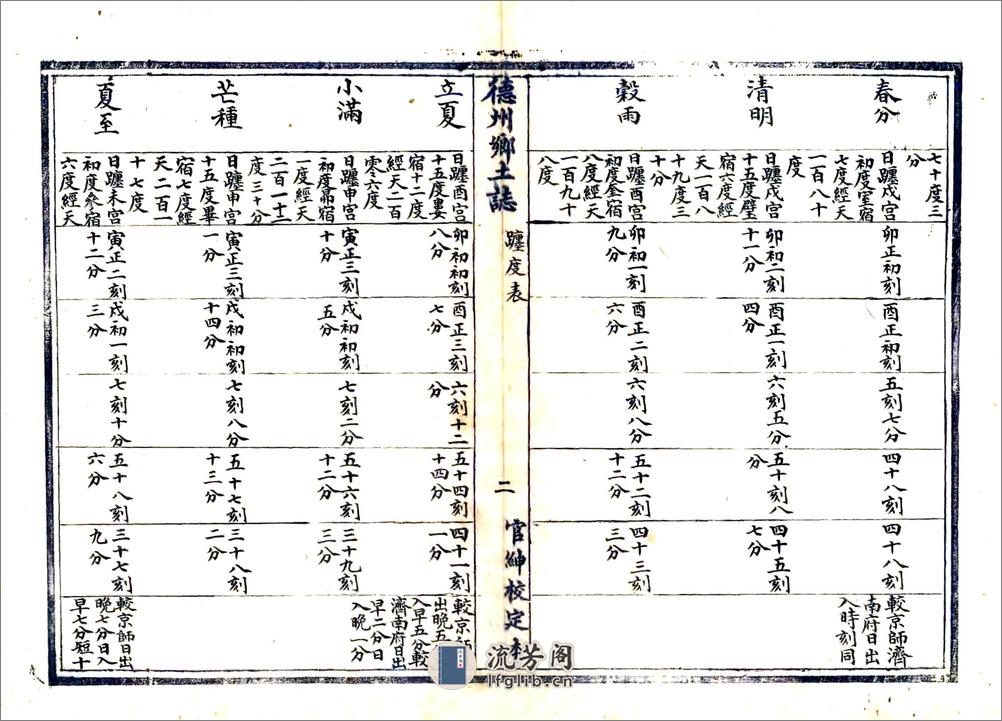 七十度三
分
春分
日躔戌宮
初度室宿
七度經天
一百八十
度
卯正初刻
酉正初刻
五刻七分
四十八刻
四十八刻
較京師濟
南府日出
入時刻同
清明
日躔戌宮
十五度壁
宿六度經
天一百八
十九度三
十分
卯初二刻
十一分
酉正一刻
四分
六刻五分
五十刻八
分
四十五刻
七分
穀雨
日躔酉宮
初度奎宿
八度經天
一百九十
八度
卯初一刻
九分
酉正二刻
六分
六刻八分
五十二刻
十二分
四十三刻
三分
德州鄉土誌
躔度表
二
官紳校定本
立夏
日躔酉宮
十五度婁
宿十二度
經天二百
零六度
卯初初刻
八分
酉正三刻
七分
六刻十二
分
五十四刻
十四分
四十一刻
一分
較京師
出晚五
入早五分較
濟南府日出
早二分日
入晚一分
小滿
日躔申宮
初度昴宿
一度經天
二百一十二
度三十分
寅正三刻
十分
戌初初刻
五分
七刻二分
五十六刻
十二分
三十九刻
三分
芒種
日躔申宮
十五度畢
宿七度經
天二百一
十七度
寅正三刻
一分
戌初初刻
十四分
七刻八分
五十七刻
十三分
三十八刻
二分
夏至
日躔未宮
初度參宿
六度經天
寅正二刻
十二分
戌初一刻
三分
七刻十分
五十八刻
六分
三十七刻
九分
較京師日出
晚七分日入
早七分短十
流芳阁
lfglib.cn